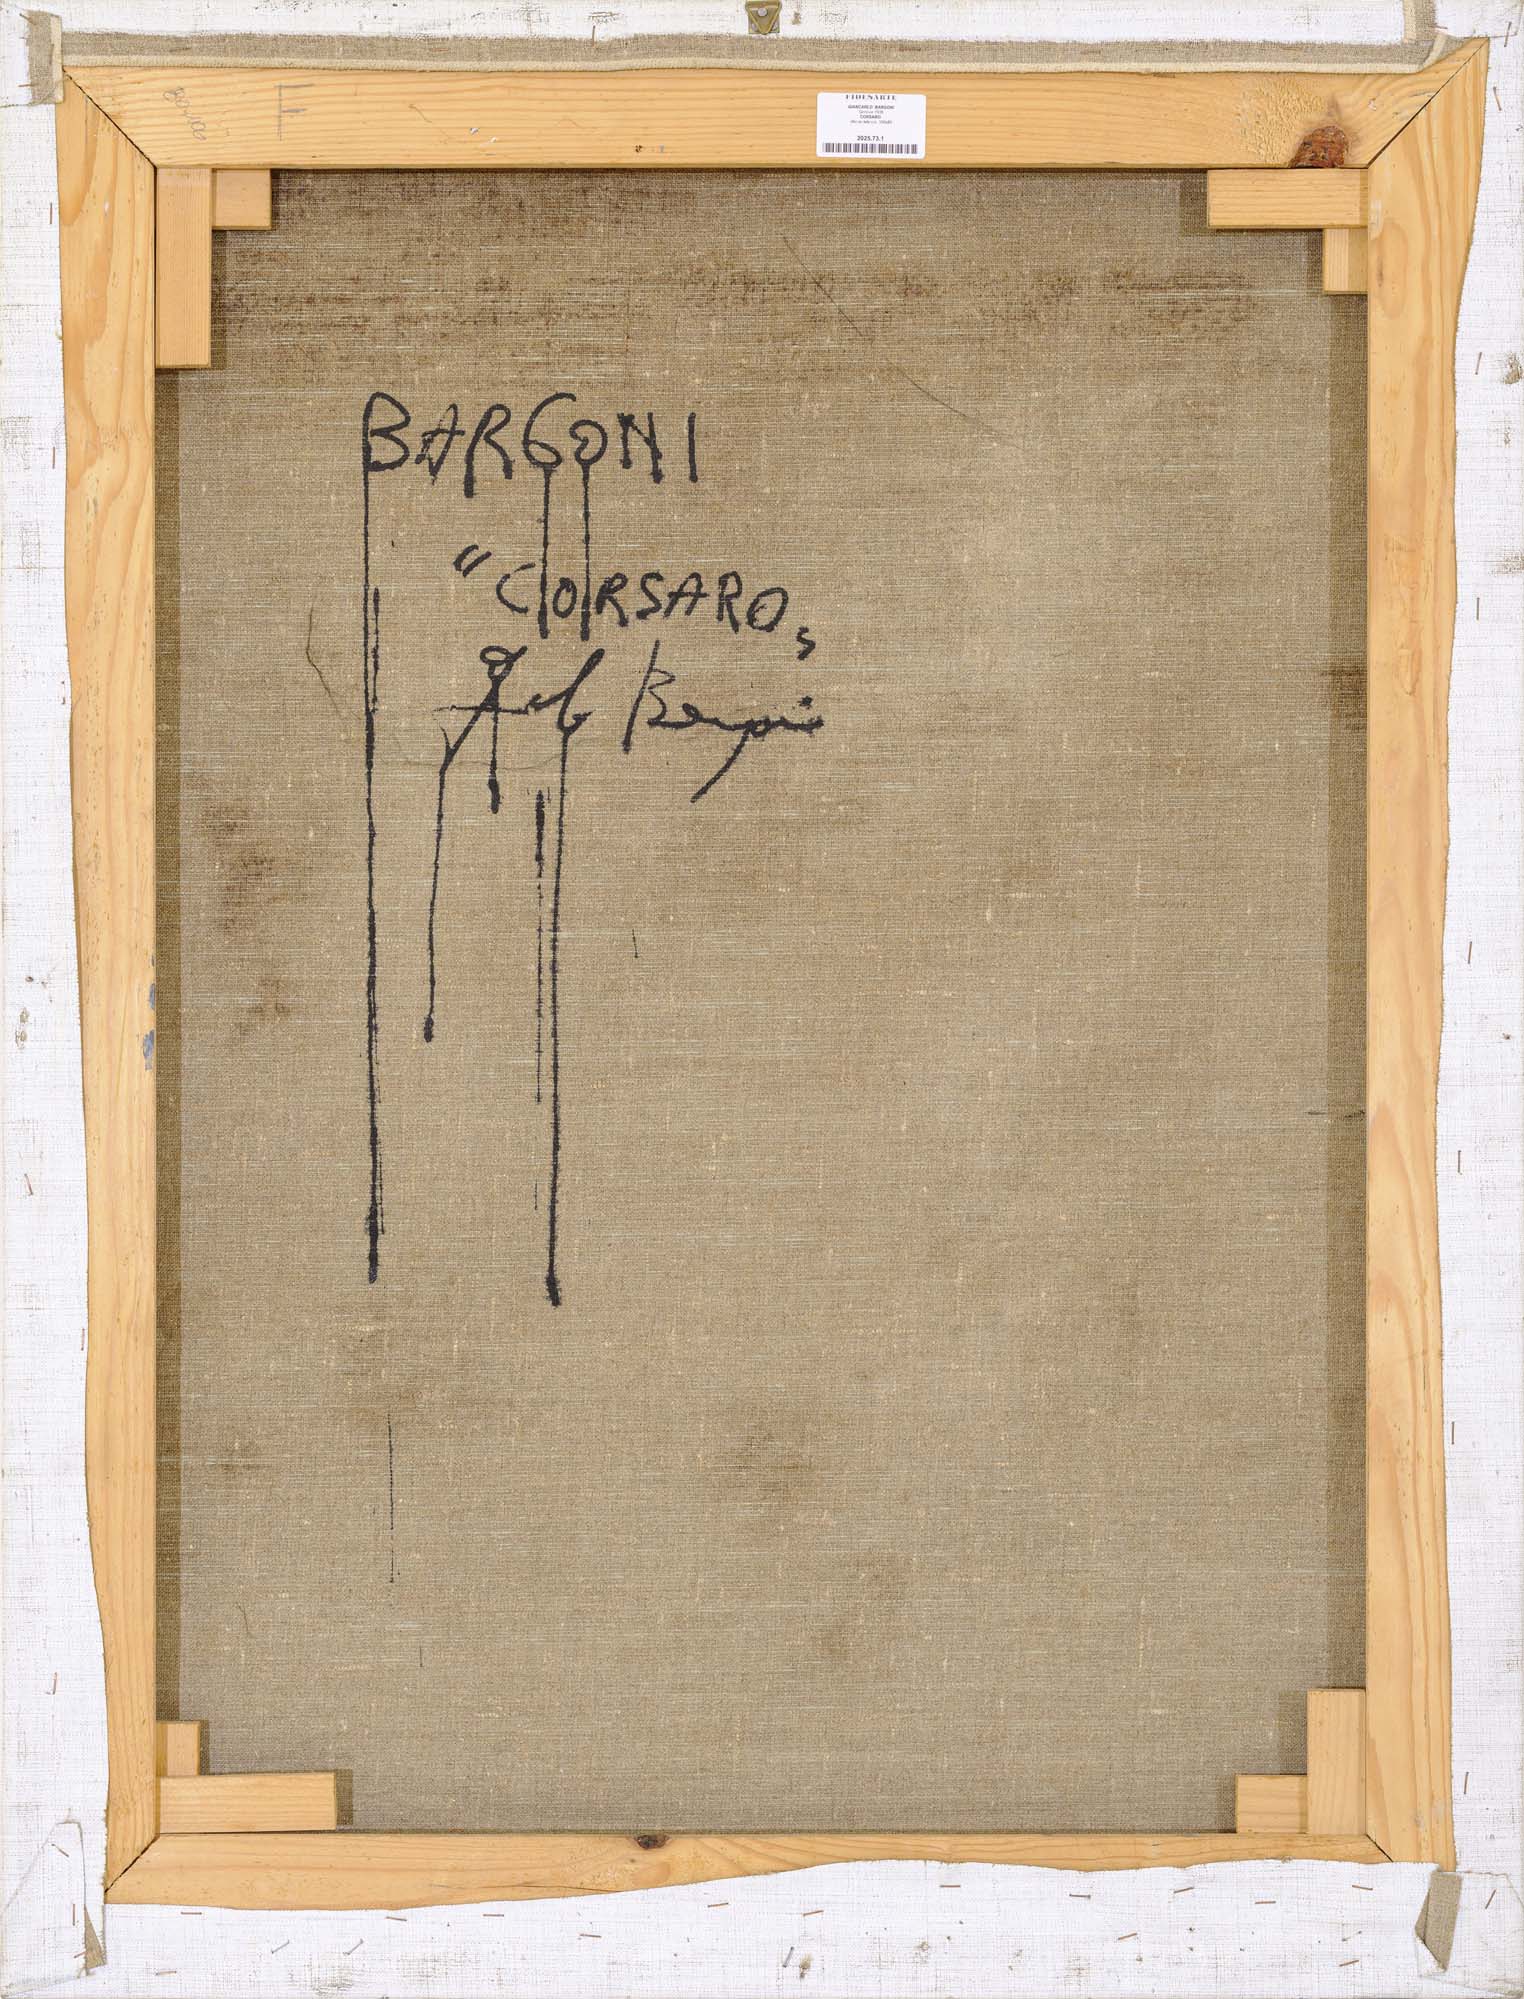 80x106
FIDESARTE
GIANCARLO BARGONI
CORSARO
2025.73.1
BARGONI
"CORSARO„
Bargoni